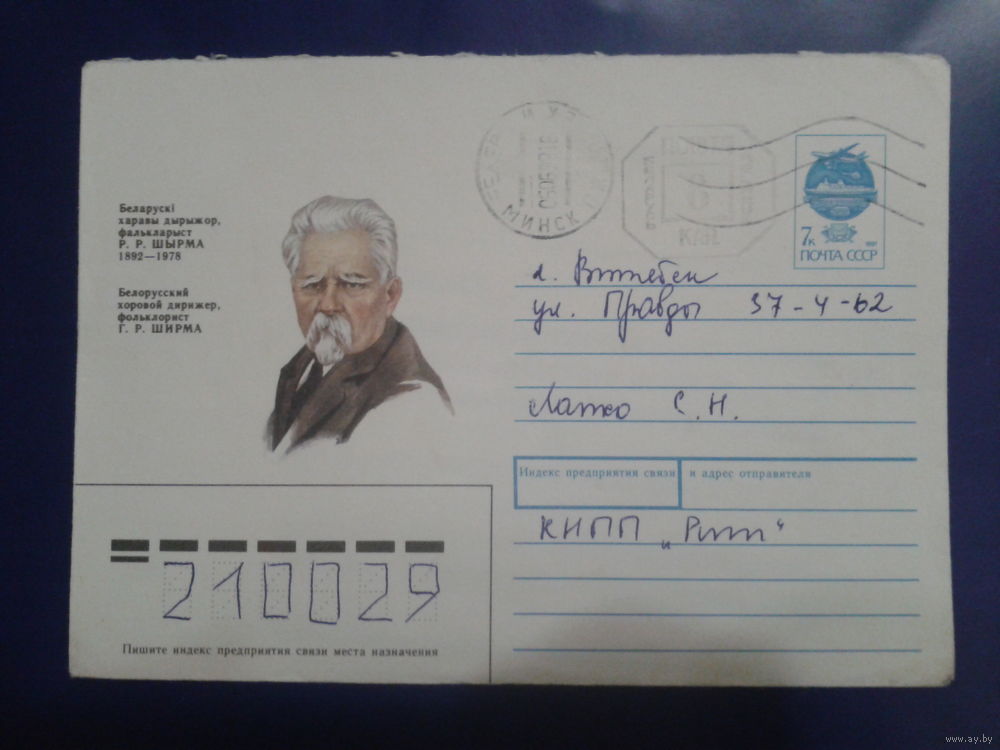 Беларускі
харавы дырыжор,
фалькларыст
Р. Р. ШЫРМА
1892—1978
Белорусский
хоровой дирижер,
фольклорист
Г. Р. ШИРМА
МИНСК
ПОЧТА
6
КОП
7к
1991
ПОЧТА СССР
г. Витебск
ул. Правды 37-4-62
Лапко С. Н.
Индекс предприятия связи и адрес отправителя
КНПП
210029
Пишите индекс предприятия связи места назначения
www.ay.by